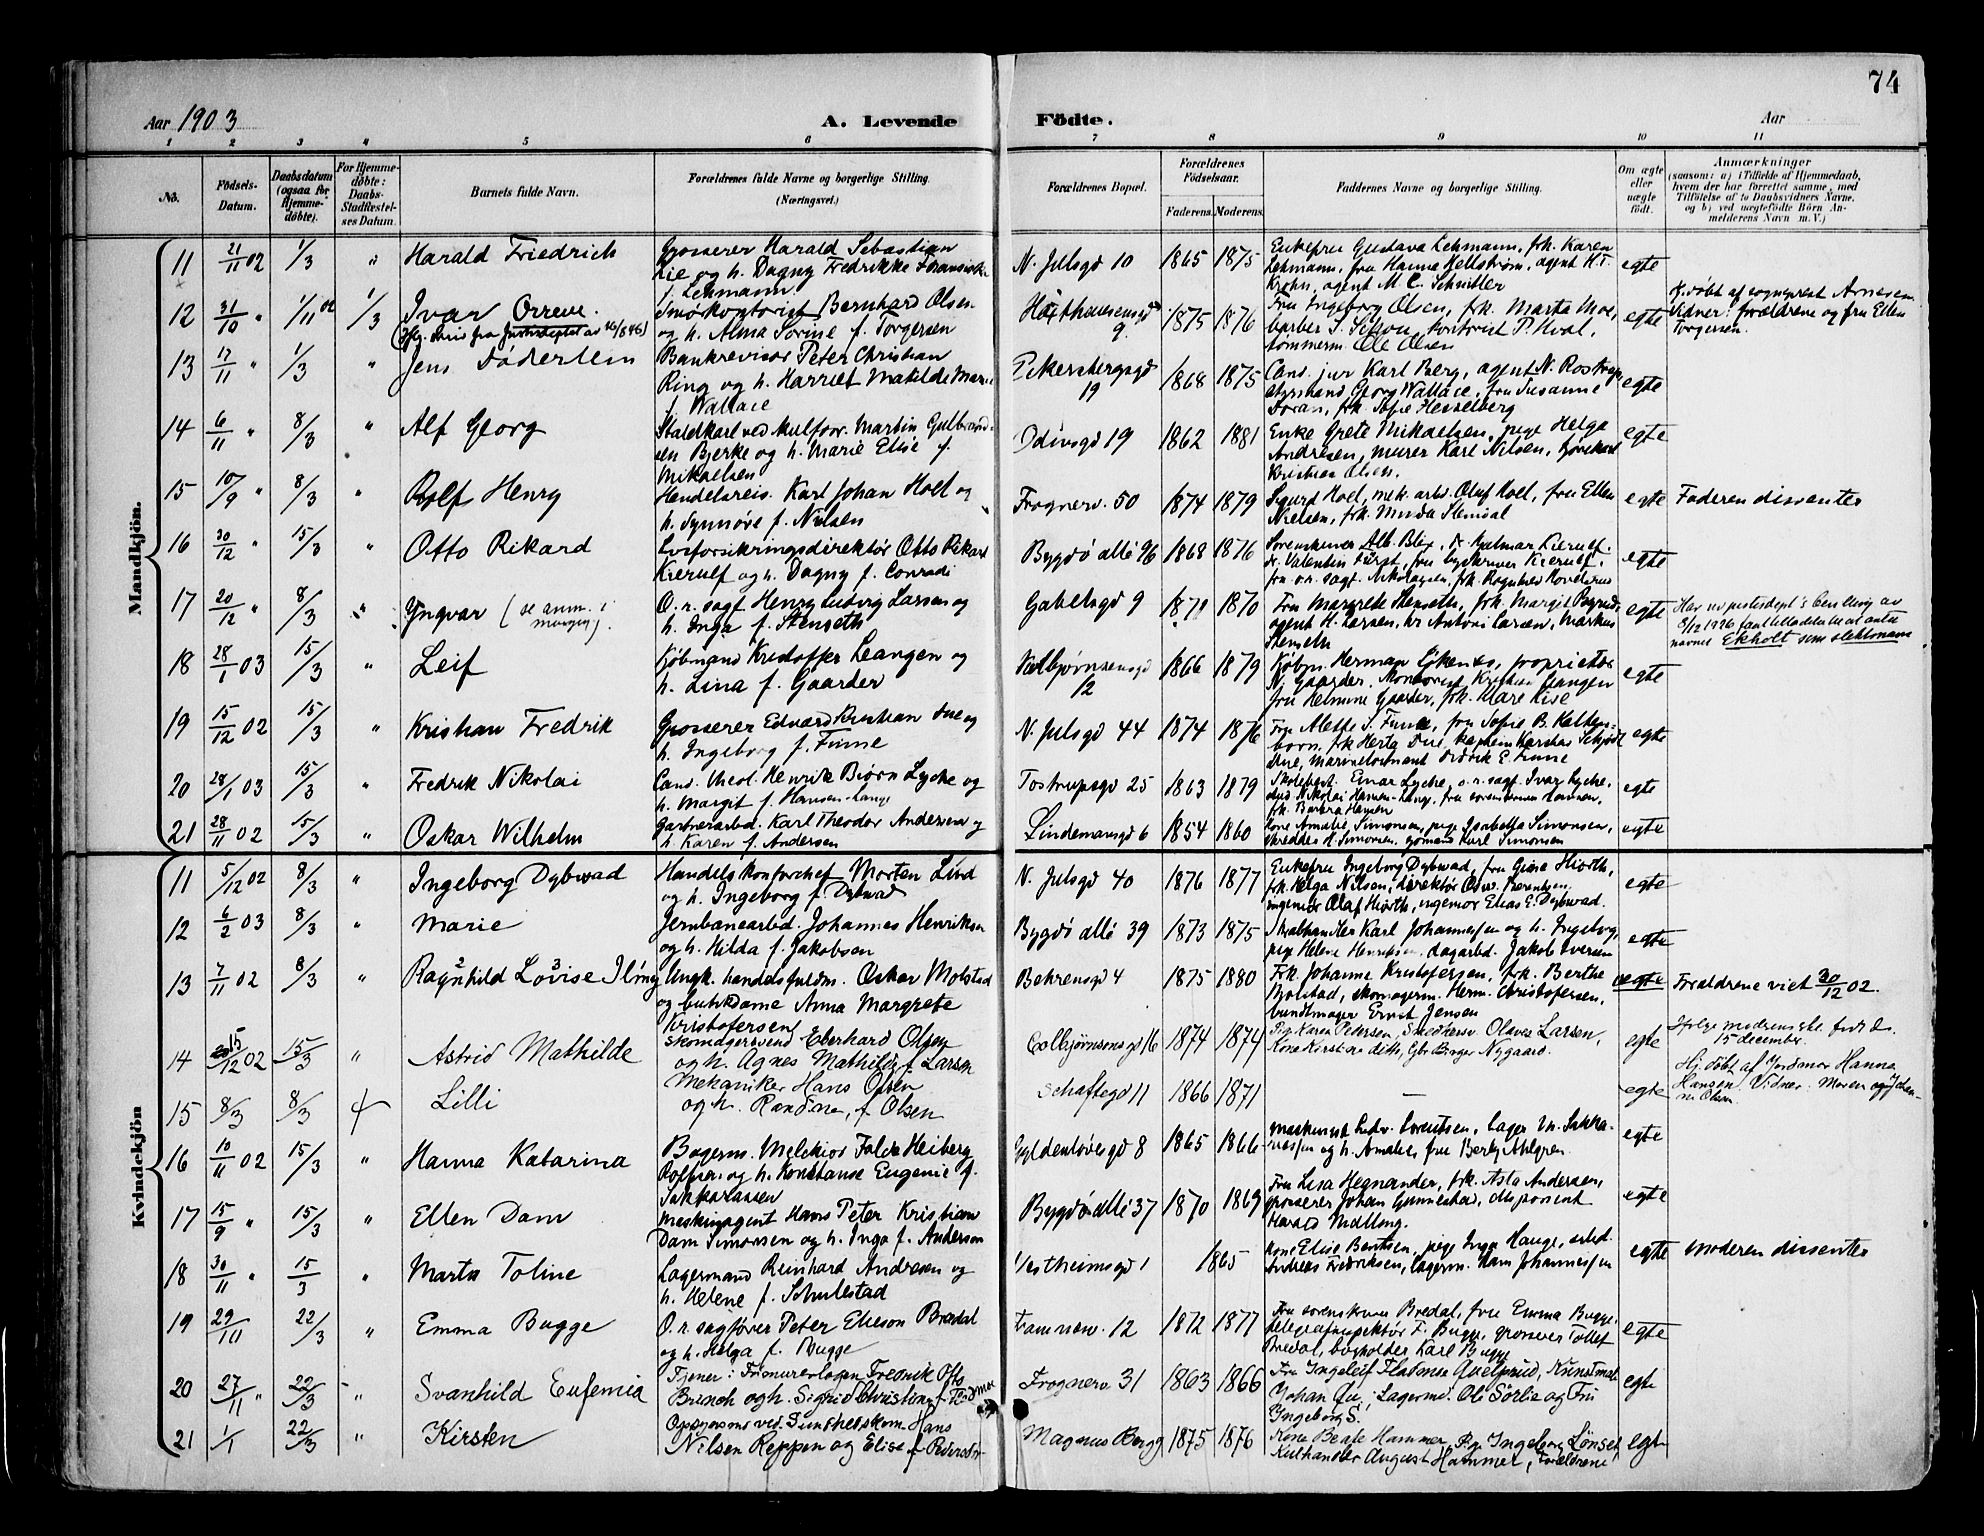 74
Aar 1903
A. Levende
Födte.
Aar
1 2 3 4 5 6 7 8 9 10 11
No.
Födsels-Datum.
Daabsdatum (ogsaa for Hjemmedöbte).
For Hjemmedöbte: Daabs-Stadfæstelses Datum.
Barnets fulde Navn.
Forældrenes fulde Navne og borgerlige Stilling. (Næringsvei.)
Forældrenes Bopæl.
Forældrenes Födselsaar.
Faderens. Moderens.
Faddernes Navne og borgerlige Stilling.
Om ægte eller uægte födt.
Anmærkninger
(saasom: a) i Tilfælde af Hjemmedaab,
hvem der har forrettet samme, med
Tilföielse af to Daabsvidners Navne.
og b) ved uægtefödte Börn Anmelderens Navn m. V.)
Mandkjön.
11 21/11 02 1/3 " Harald Friedrich
Grosserer Harald Sebastian
Lie og h. Dagny Fredrikke
f. Lehmann
N. Julsgd 10 1865 1875
Enkefru Gustava Lehmann, frk. Karen
Lehmann, fru Hanna Hellström, agent H.T.
Krohn, agent M. C. Schnitler
egte
12 31/10 " 1/11 02 1/3 Ivar Orreve
Bernhard Olsen
og h. Alma Sorine f. Torgersen
9 1875 1876
Fru Ingeborg Olsen, frk. Marta Moe,
barber S. kontorist P. Hval,
tömmerm. Ole Olsen
egte
Hj. döbt af sogneprest Arnesen.
Vidner: forældrene og fru Ellen
Torgersen.
13 17/11 " 1/3 " Jens
Bankrevisor Peter Christian
Ring og h. Harriet Matilde Marie
f. Wallace
Eckersbergsgd 19 1868 1875
Cand. jur Karl Berg, agent N. Rostrup
styrmand Georg Wallace, fru Susanne
Doran, frk. Sofie Hesselberg
egte
14 6/11 " 8/3 " Alf Georg
Staldkarl ved Martin Gulbrand-
sen Bjerke og h. Marie Elise f.
Mikaelsen
Odinsgd 19 1862 1881
Enke Grete Mikaelsen, pige Helga
Andresen, murer Karl Nilsen,
Kristian Olsen.
egte
15 10/9 " 8/3 " Rolf Henry
Handelsreis. Karl Johan Hoel og
h. Synnöve f. Nielsen
Frognerv. 50 1874 1879
Sigurd Hoel, mek. arb. Oluf Hoel, fru Ellen
Nielsen, frk.
egte Faderen dissenter
16 30/12 " 15/3 " Otto Rikard
Livsforsikringsdirektör Otto Rikard
Kierulf og h. Dagny f. Conradi
Bygdö allé 96 1868 1876
Sorenskriver Alb. Blix, Hjalmar Kierulf.
dr. Valentin Fürst, fru
egte
17 20/12 " 8/3 " Yngvar (se anm. i margin).
O. r. sagf. Henry Ludvig Larsen og
h. Inga f. Stenseth
Gabelsgd 9 1871 1870
Fru Margrete Stenseth, frk. Margit
agent H. Larsen, hr Antoni Larsen, Markus
Stenseth
egte
8/12 1926
navnet Ekholt som slektsnavn
18 28/1 03 15/3 " Leif
Kjöbmand Kristoffer Leangen og
h. Lina f. Gaarder
12 1866 1879
Kjöbm. Herman proprietær
N. Gaarder, Kristian Leangen
fru Helmine Gaarder, frk. Mare
egte
19 15/12 02 15/3 " Kristian Fredrik
Grosserer Edvard Kristian Due og
h. Ingeborg f. Finne
N. Julsgd 44 1874 1876
Fru Alette S. Finne, fru Sofie B. Kalten-
born, frk Herta Due, kaptein Karsten
Due, Marinelöitnant E. Finne
egte
20 28/1 03 15/3 " Fredrik Nikolai
Cand. theol. Henrik Björn Lycke og
h. Margit f. Hansen-Lange
Tostrupsgd 25 1863 1879
Skolebest. Einar Lycke, o. r. sagf. Ivar Lycke,
stud Nikolai Hansen-Lange, fru
frk. Barbra Hansen
egte
21 28/11 02 15/3 " Oskar Wilhelm
Gartnerarbd. Karl Theodor Andersen og
h. Karen f. Andersen
Lindemansgd 6 1854 1860
Kone Amalie Simonsen, pige Isabella Simonsen,
skredder H. Simonsen, sjömand Karl Simonsen
egte
Kvindekjön
11 5/12 02 8/3 " Ingeborg Dybwad
Handelskontorchef Morten Lind
og h. Ingeborg f. Dybwad
N. Julsgd 40 1876 1877
Enkefru Ingeborg Dybwad, fru Hiorth,
frk. Helga Nilsen, direktör
ingeniör Olaf Hiorth, ingeniör Elias E. Dybwad.
egte
12 6/2 03 8/3 " Marie
Jernbanearbd. Johannes Henriksen
og h. Hilda f. Jakobsen
Bygdö allé 39 1873 1875
Karl Johannessen og h. Ingeborg,
pige Helene Henriksen, dagarbd. Jakob Iversen
egte
13 7/11 02 8/3 " Ragnhild Lovise
Ungk. handelsfuldm. Oskar Molstad
og butikdame Anna Margrete
Kristofersen
Behrensgd 4 1875 1880
Frk. Johanne Kristofersen, frk. Berthe
Molstad, skomagerm. Herm. Christofersen,
bundtmager Ernst Jensen
uegte Forældrene viet 30/12 02.
14 15/12 02 15/3 " Astrid Mathilde
Skomagersvend Eberhard Olsen
og h. Agnes Mathilde f. Larsen
Colbjörnsensgd 16 1874 1874
Pige Karen Petersen, Snedkersv. Olaves Larsen,
Kone Kirstine ditto, Gbr Birger Nygaard.
egte
Ifölge födt d.
15 december.
15 8/3 8/3 Lilli
Mekaniker Hans Olsen
og h. Randine, f. Olsen
Schaftegd 11 1866 1871
—
egte
Hj. döbt af Jordmor Hanna
Hansen. Vidner: Moren og
Olsen
16 10/11 02 15/3 " Hanna Katarina
Bagerm. Melchior Falck Heiberg
og h. Konstanse Eugenie f.
Sakkarassen
Gyldenlövesgd 8 1865 1866
Maskinist Ludv. Lorentsen,
og h. Amalie, fru Berly Ahlgren
egte
17 15/9 " 15/3 " Ellen Dam
Maskinagent Hans Peter Kristian
Dam Simonsen og h. Inga f. Andersen
Bygdö allé 37 1870 1869
Fru Lisa Hegnander, frk. Asta Andersen,
grosserer Johan Gunnestad, disponent
Harald Midling.
egte
18 30/11 " 15/3 " Marta Toline
Lagermand Reinhard Andresen og
h. Helene f. Schulestad
Vestheimsgd 1 1865
Kone Elise Bentsen, pige Inga Hauge, arbd.
Andreas Fredriksen, lagerm. Hans Johannessen
egte Moderen dissenter
19 29/11 22/3 " Emma Bugge
O. r. sagförer Peter Elieson Bredal
og h. Helga f. Bugge
Framnesv. 12 1872 1877
Fru sorenskriver Bredal, fru Emma Bugge
telegrafinspektör F. Bugge, grosserer Tollef
Bredal, bogholder Karl Bugge
egte
20 27/11 " 22/3 " Svanhild Eufemia
Tjener i Frimurerlogen Fredrik Otto
Bruch og h. Sigrid Christine f.
Frognerv 31 1863 1866
Fru Ingeleif
Johan Lagermd. Ole Sörlie og Fru
Ingeborg S.
egte
21 1/1 22/3 " Kirsten
Opsynsmd ved Sundhedskom. Hans
Nilsen Reppen og Elise f. Pedersdtr.
Magnus Bergg 1875 1876
Kone Beate Hammer, Pge Ingeborg Lönset
Kulhandler August Hammer, Forældrene
egte